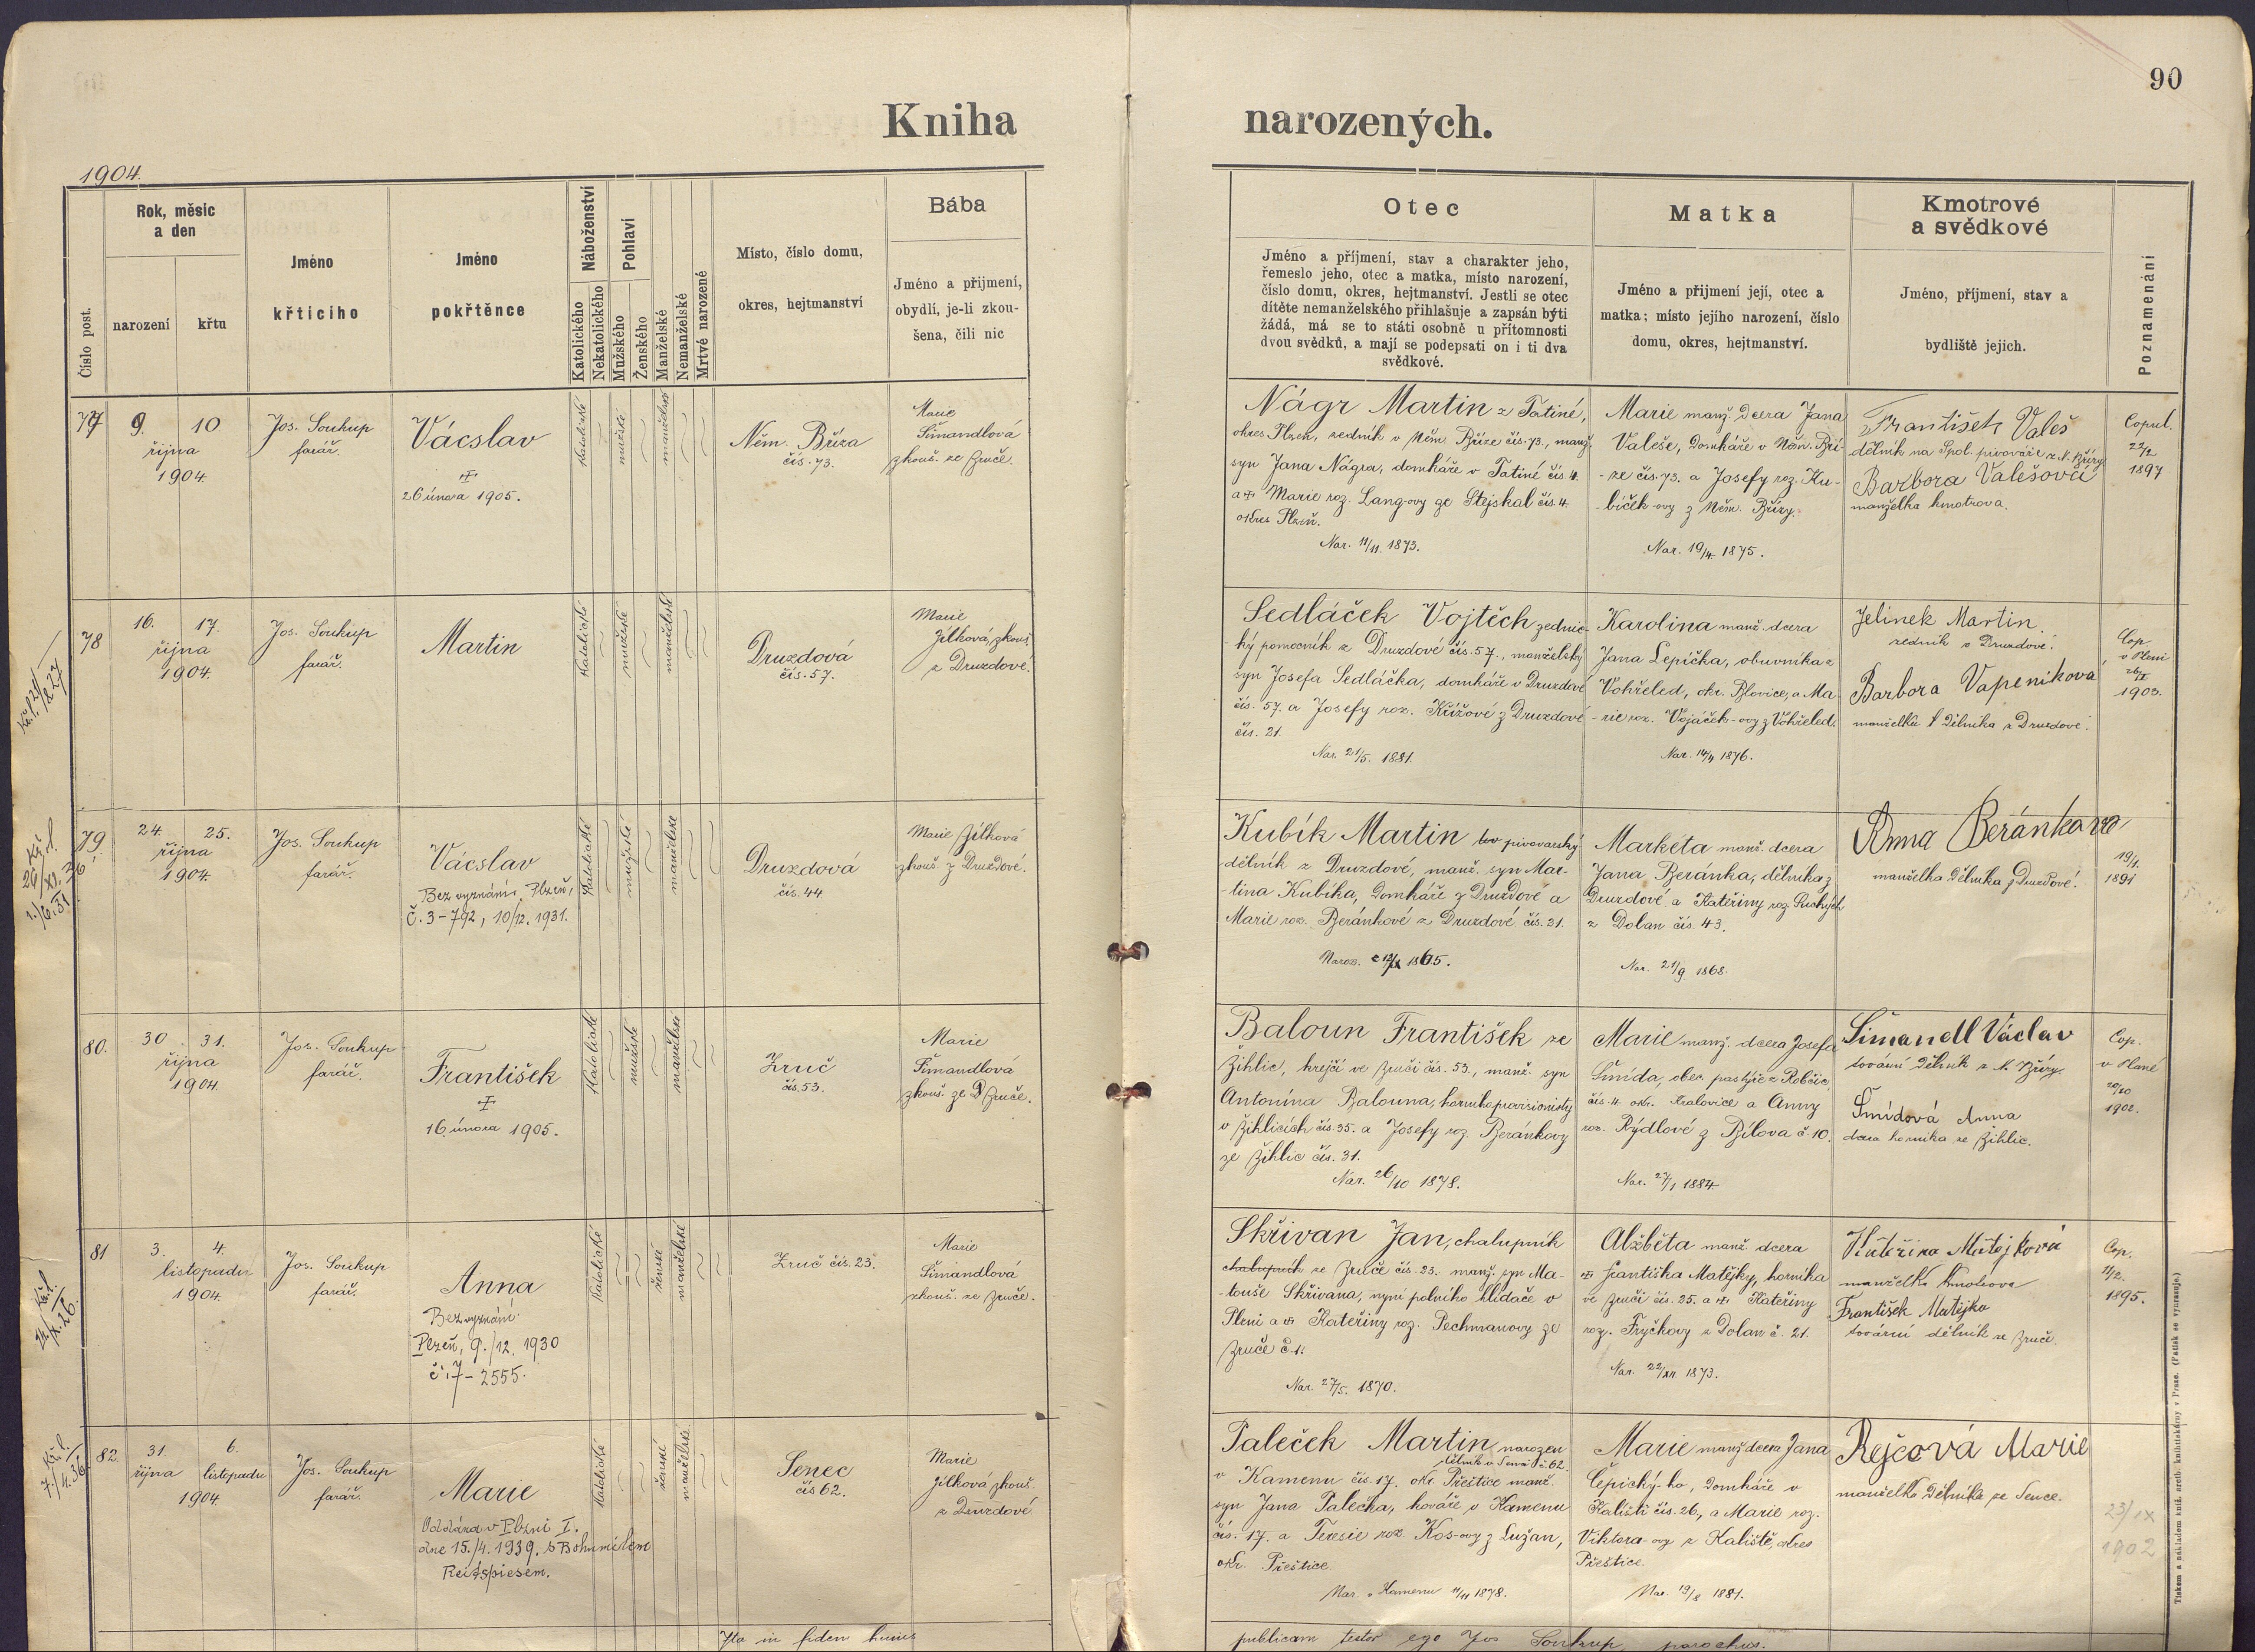 90
Kniha narozených.
1904.
Číslo post.
Rok, měsíc
a den
narození
křtu
Jméno
křticího
Jméno
pokřtěnce
Náboženství
Katolického
Nekatolického
Pohlaví
Mužského
Ženského
Manželské
Nemanželské
Mrtvé narozené
Místo, číslo domu,
okres, hejtmanství
Bába
Jméno a příjmení,
obydlí, je-li zkou-
šena, čili nic
Otec
Jméno a příjmení, stav a charakter jeho,
řemeslo jeho, otec a matka, místo narození,
číslo domu, okres, hejtmanství. Jestli se otec
dítěte nemanželského přihlašuje a zapsán býti
žádá, má se to státi osobně u přítomnosti
dvou svědků, a mají se podepsati on i ti dva
svědkové.
Matka
Jméno a přijmení její, otec a
matka; místo jejího narození, číslo
domu, okres, hejtmanství.
Kmotrové
a svědkové
Jméno, příjmení, stav a
bydliště jejich.
Poznamenání
77
9. 10
října
1904
Jos. Soukup
farář.
Vácslav
26 února 1905.
katolické
mužské
manželské
Něm. Bříza
čís. 73.
Marie
Šimandlová
zkouš. ze Zruče.
Nágr Martin z Tatiné,
okres Plzeň, zedník v Něm. Bříze čís. 73., manž.
syn Jana Nágra, domkáře v Tatiné čís. 4.
a Marie roz. Lang-ovy ze Stejskal čís. 4.
okres Plzeň.
Nar. 11/11. 1873.
Marie manž. dcera Jana
Valeše, domkáře v Něm. Bří-
-ze čís. 73. a Josefy roz. Ku-
-bíček-ovy z Něm. Břízy.
Nar. 19/4. 1875.
František Valeš
dělník na Spol. pivováře z N. Břízy
Barbora Valešová
manželka kmotrova.
Copul.
22/2
1897
78
16. 17.
října
1904.
Jos. Soukup
farář.
Martin
Katolické
mužské
manželské
Druzdová
čís. 57.
Marie
Jílková, zkouš.
z Druzdové.
Sedláček Vojtěch zednic-
-ký pomocník z Druzdové čís. 57., manželský
syn Josefa Sedláčka, domkáře v Druzdové
čís. 57 a Josefy roz. Křížové z Druzdové
čís. 21.
Nar. 21/5. 1881.
Karolina manž. dcera
Jana Lepíčka, obuvníka z
Vohřeled, okr. Blovice, a Ma-
-rie roz. Vojáček-ovy z Vohřeled.
Nar. 14/4 1876.
Jelinek Martin
zedník z Druzdové.
Barbora Vapenikova
manželka dělníka z Druzdové.
Cop.
v Plzni
1903.
79.
24. 25.
října
1904.
Jos. Soukup
farář.
Vácslav
Bez vyznání. Plzeň,
Č. 3-792, 10/12. 1931.
Katolické
mužské
manželské
Druzdová
čís. 44.
Marie Jílková
zkouš. z Druzdové.
Kubík Martin pivovarský
dělník z Druzdové, manž. syn Mar-
-tina Kubíka, domkáře z Druzdové a
Marie roz. Beránkové z Druzdové čís. 21.
Markéta manž. dcera
Jana Beránka, dělníka z
Druzdové a Kateřiny roz.
z Dolan čís. 43.
Nar. 21/9 1868.
Anna Beránkova
manželka dělníka z Druzdové.
19/1.
1891
80.
30 31.
října
1904.
Jos. Soukup
farář.
František
16. února 1905.
Katolické
mužské
manželské
Zruč
čís. 53.
Marie
Šimandlová
zkouš. ze Zruče.
Baloun František ze
Žihlic, krejčí ve Zruči čís. 53., manž. syn
Antonína Balouna, horníka provisionisty
v Žihlicích čís. 35. a Josefy roz. Beránkovy
ze Žihlic čís. 31.
Nar. 26/10 1878.
Marie manž. dcera Josefa
Šmída, obec. pastýře z Robčic
čís. 4. okr. Kralovice a Anny
roz. Rýdlové z Bílova č. 10.
Nar. 27/1 1884
Šimandl Václav
tovární dělník z N. Břízy.
Šmídová Anna
dcera horníka ze Žihlic.
Cop.
v Plané
20/10
1902.
81
3. 4.
listopadu
1904.
Jos. Soukup
farář.
Anna
Bez vyznání
Plzeň, 9./12. 1930
č. 7-2555.
Katolické
ženské
manželské
Zruč čís. 23.
Marie
Šimandlová
zkouš. ze Zruče.
Skřivan Jan, chalupník
chalupník ze Zruče čís. 23. manž. syn Ma-
-touše Skřivana, nyní polního hlídače v
Plzni a Kateřiny roz. Pechmanovy ze
Zruče č. 1.
Nar. 27/5. 1870.
Alžběta manž. dcera
Františka Matějky, horníka
ve Zruči čís. 25. a Kateřiny
roz. Fryčkovy z Dolan č. 21.
Nar. 22/XII. 1873.
Kateřina Matějková
manželka kmotrova
František Matějka
tovární dělník ze Zruče.
Cop.
1895.
82.
31. 6.
října listopadu
1904
Jos. Soukup
farář.
Marie
Oddána v Plzni I.
dne 15./4. 1939. s Bohumilem
Reitspiesem.
Katolické
ženské
manželské
Senec
čís 62.
Marie
Jílková zkouš.
z Druzdové.
Paleček Martin narozen
dělník v Senci č. 62.
v Kamenu čís. 17. okr. Přeštice manž.
syn Jana Palečka, kováře v Kamenu
čís. 17. a Teresie roz. Kos-ovy z Lužan,
okr. Přeštice.
Nar. v Kamenu 11/11 1878.
Marie manž. dcera Jana
Čepický-ho, domkáře v
Kališti čís. 26., a Marie roz.
Viktora-ovy z Kaliště, okres
Přeštice.
Nar. 19/8 1881.
Rejcová Marie
manželka dělníka ze Sence.
23/IX
1902
Ita in fidem huius publicam testor ego Jos Soukup, parochus.